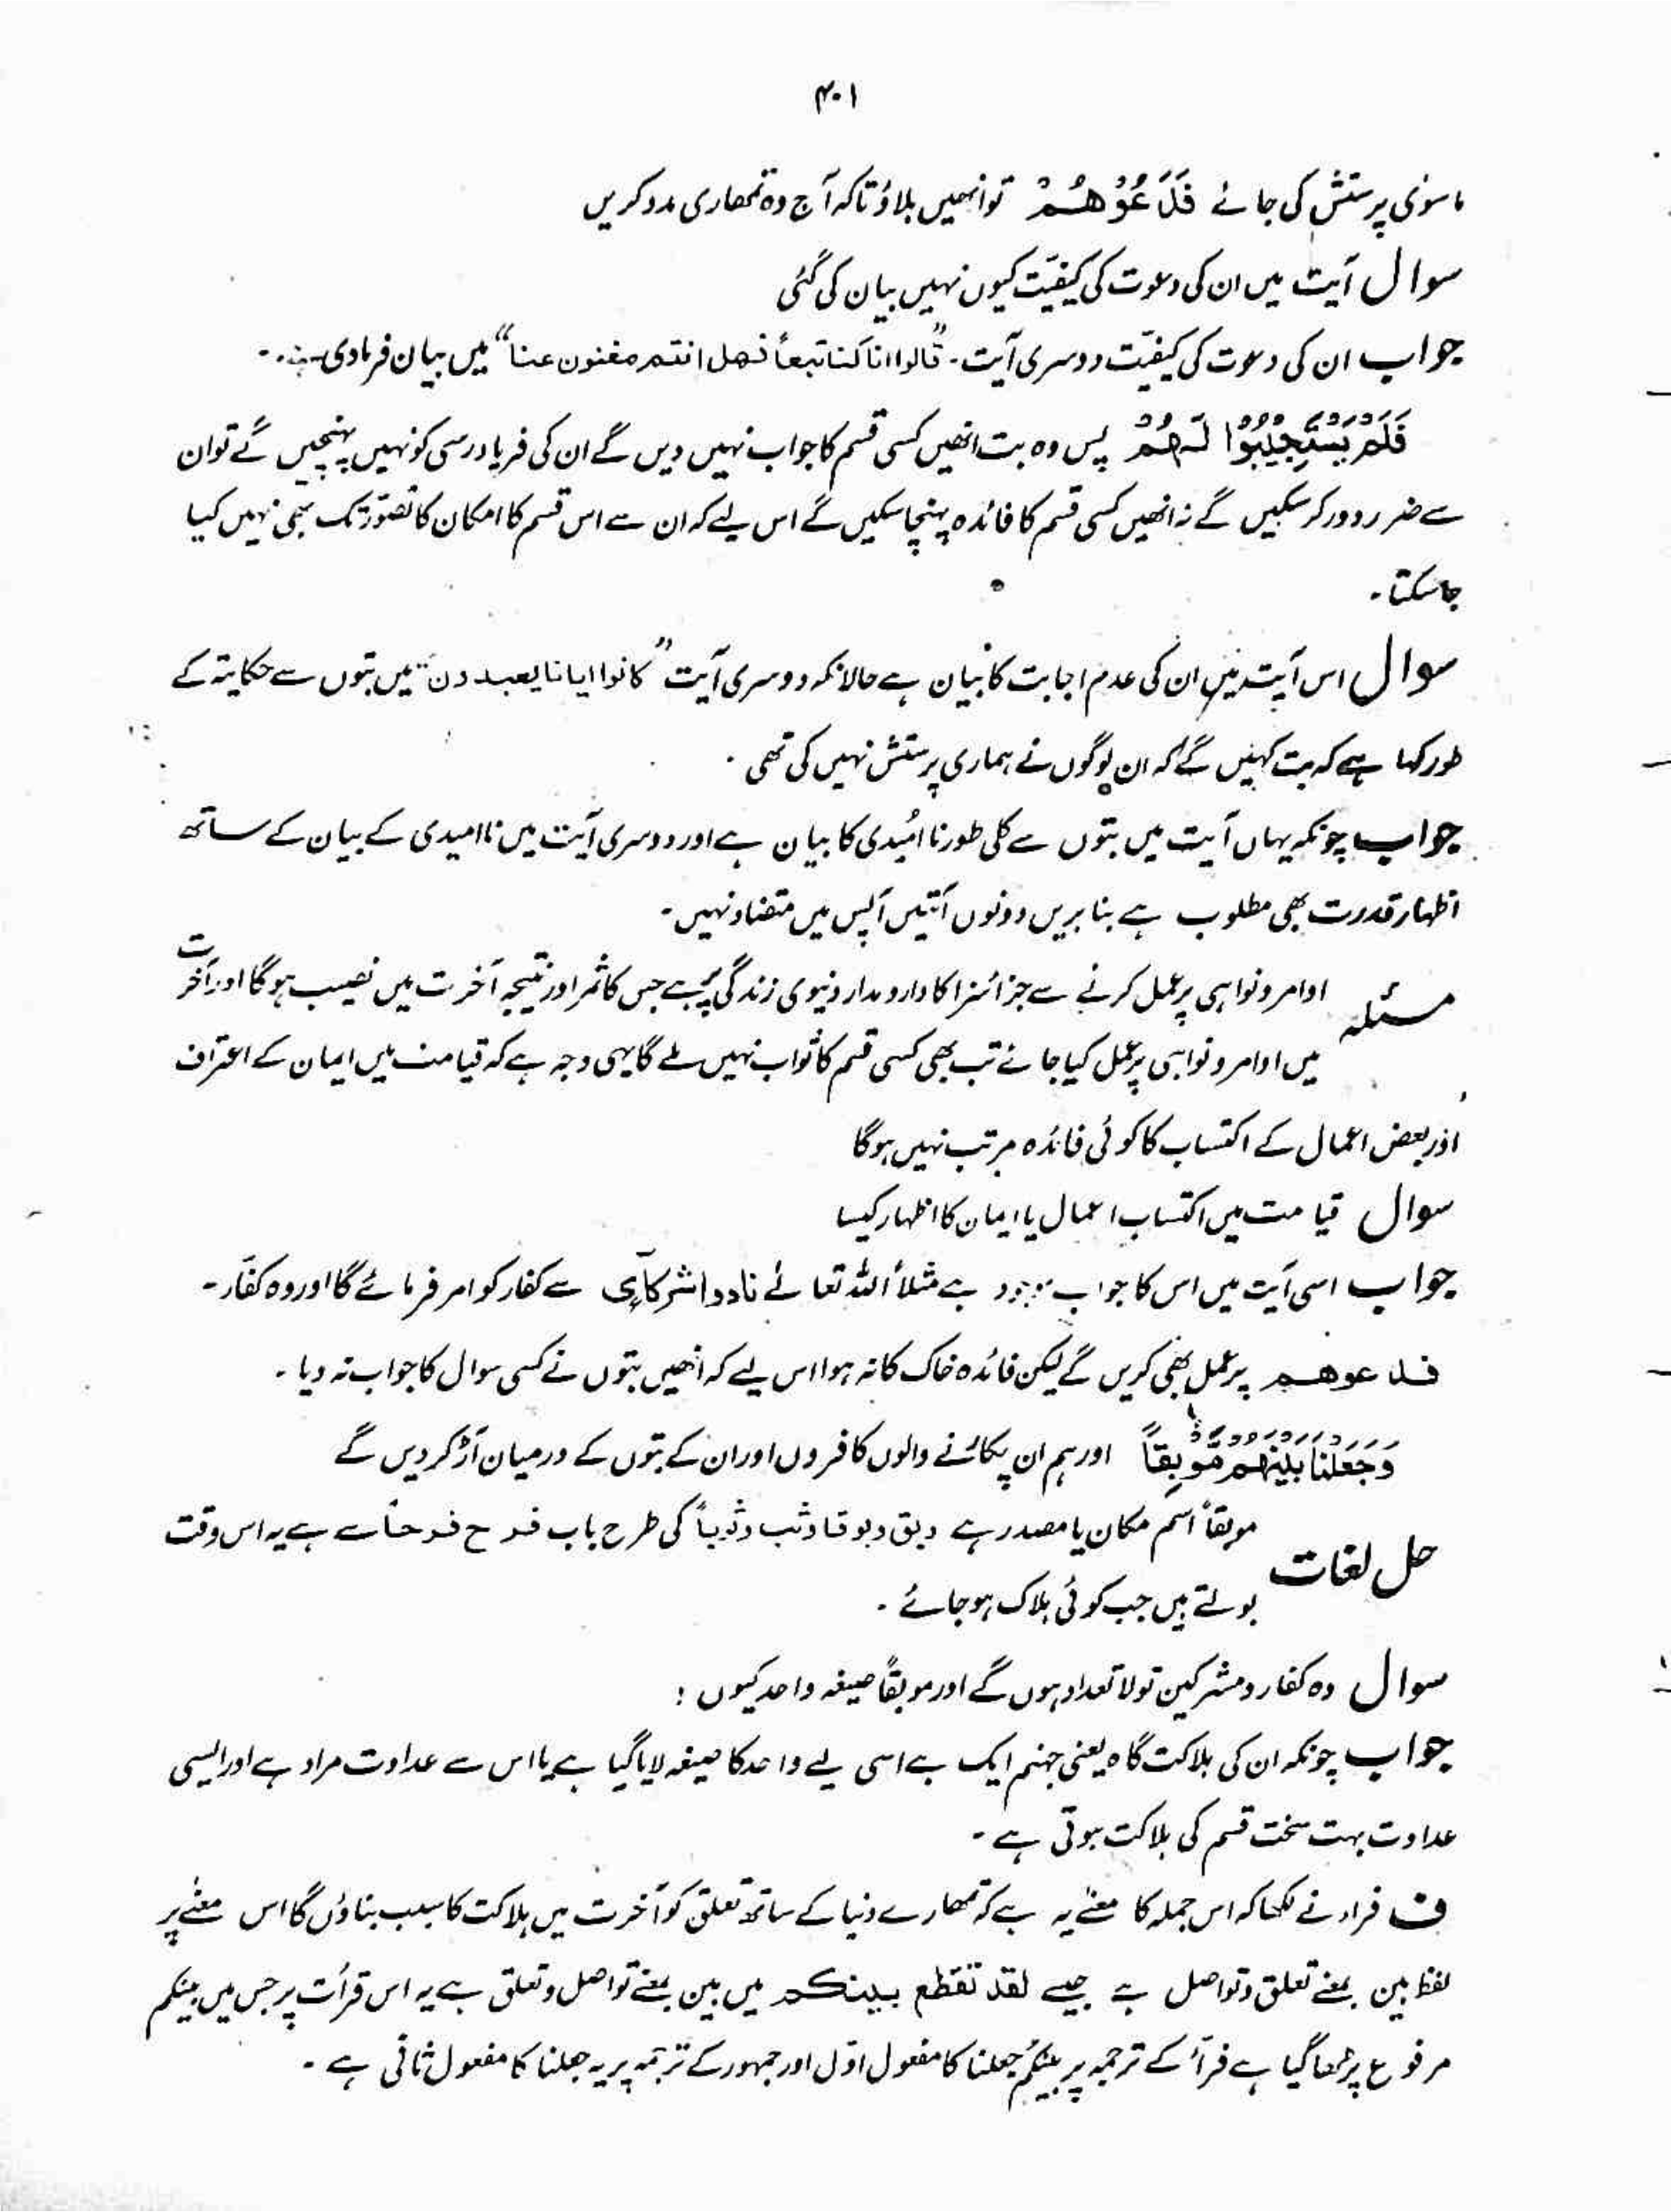 ۴۰۱
ماسوٰی پرستش کی جائے فَدَعَوْهُمْ تو انھیں بلاؤ تاکہ آج وہ تمھاری مدد کریں
سوال آیت میں ان کی دعوت کی کیفیّت کیوں نہیں بیان کی گئی
جواب ان کی دعوت کی کیفیّت دوسری آیت۔ "قالوا انا کنا تبعاً فهل انتم مغنون عنا" میں بیان فرمادی ہے۔
فَلَمْ یَسْتَجِیْبُوْا لَهُمْ پس وہ بت انھیں کسی قسم کا جواب نہیں دیں گے ان کی فریاد رسی کو نہیں پہنچیں گے تو ان
سے ضرر دور کر سکیں گے نہ انھیں کسی قسم کا فائدہ پہنچا سکیں گے اس لیے کہ ان سے اس قسم کا امکان کا تصوّر تک بھی نہیں کیا
جا سکتا۔
سوال اس آیت میں ان کی عدم اجابت کا بیان ہے حالانکہ دوسری آیت "کانوا ایانا یعبدون" میں بتوں سے حکایتہ کے
طور کہا ہے کہ بت کہیں گے کہ ان لوگوں نے ہماری پرستش نہیں کی تھی۔
جواب چونکہ یہاں آیت میں بتوں سے کلی طور نا امُیدی کا بیان ہے اور دوسری آیت میں نا امیدی کے بیان کے ساتھ
اظہار قدرت بھی مطلوب ہے بنا بریں دونوں آیتیں آپس میں متضاد نہیں۔
مسئلہ اوامر و نواہی پر عمل کرنے سے جزا سزا کا دار و مدار دنیوی زندگی پر ہے جس کا ثمر اور نتیجہ آخرت میں نصیب ہوگا اور آخرت
میں اوامر و نواہی پر عمل کیا جائے تب بھی کسی قسم کا ثواب نہیں ملے گا یہی وجہ ہے کہ قیامت میں ایمان کے اعتراف
اور بعض اعمال کے اکتساب کا کوئی فائدہ مرتب نہیں ہوگا
سوال قیامت میں اکتساب اعمال یا ایمان کا اظہار کیسا
جواب اسی آیت میں اس کا جواب موجود ہے مثلاً اللہ تعالےٰ نادوا شرکآءی سے کفار کو امر فرمائے گا اور وہ کفّار۔
فدعوهم پر عمل بھی کریں گے لیکن فائدہ خاک کا نہ ہوا اس لیے کہ انھیں بتوں نے کسی سوال کا جواب نہ دیا۔
وَجَعَلْنَا بَیْنَهُمْ مَّوْبِقاً اور ہم ان پکارنے والوں کافروں اور ان کے بتوں کے درمیان آڑ کر دیں گے
حل لغات موبقاً اسم مکان یا مصدر ہے وبق وبوقا وثب وثوباً کی طرح باب فرح فرحاً سے ہے یہ اس وقت
بولتے ہیں جب کوئی ہلاک ہو جائے۔
سوال وہ کفار و مشرکین تو لا تعداد ہوں گے اور موبقاً صیغہ واحد کیوں :
جواب چونکہ ان کی ہلاکت گاہ یعنی جہنم ایک ہے اسی لیے واحد کا صیغہ لایا گیا ہے یا اس سے عداوت مراد ہے اور ایسی
عداوت بہت سخت قسم کی ہلاکت ہوتی ہے۔
ف فراء نے لکھا کہ اس جملہ کا معنے یہ ہے کہ تمھارے دنیا کے ساتھ تعلق کو آخرت میں ہلاکت کا سبب بناؤں گا اس معنٰے پر
لفظ بین بمعنے تعلق و تواصل ہے جیسے لقد تقطع بینکم میں بین بمعنے تواصل و تعلق ہے یہ اس قرأت پر جس میں بینکم
مرفوع پڑھا گیا ہے فرآء کے ترجمہ پر بینکُم جعلنا کا مفعول اوّل اور جمہور کے ترجمہ پر یہ جعلنا کا مفعول ثانی ہے۔